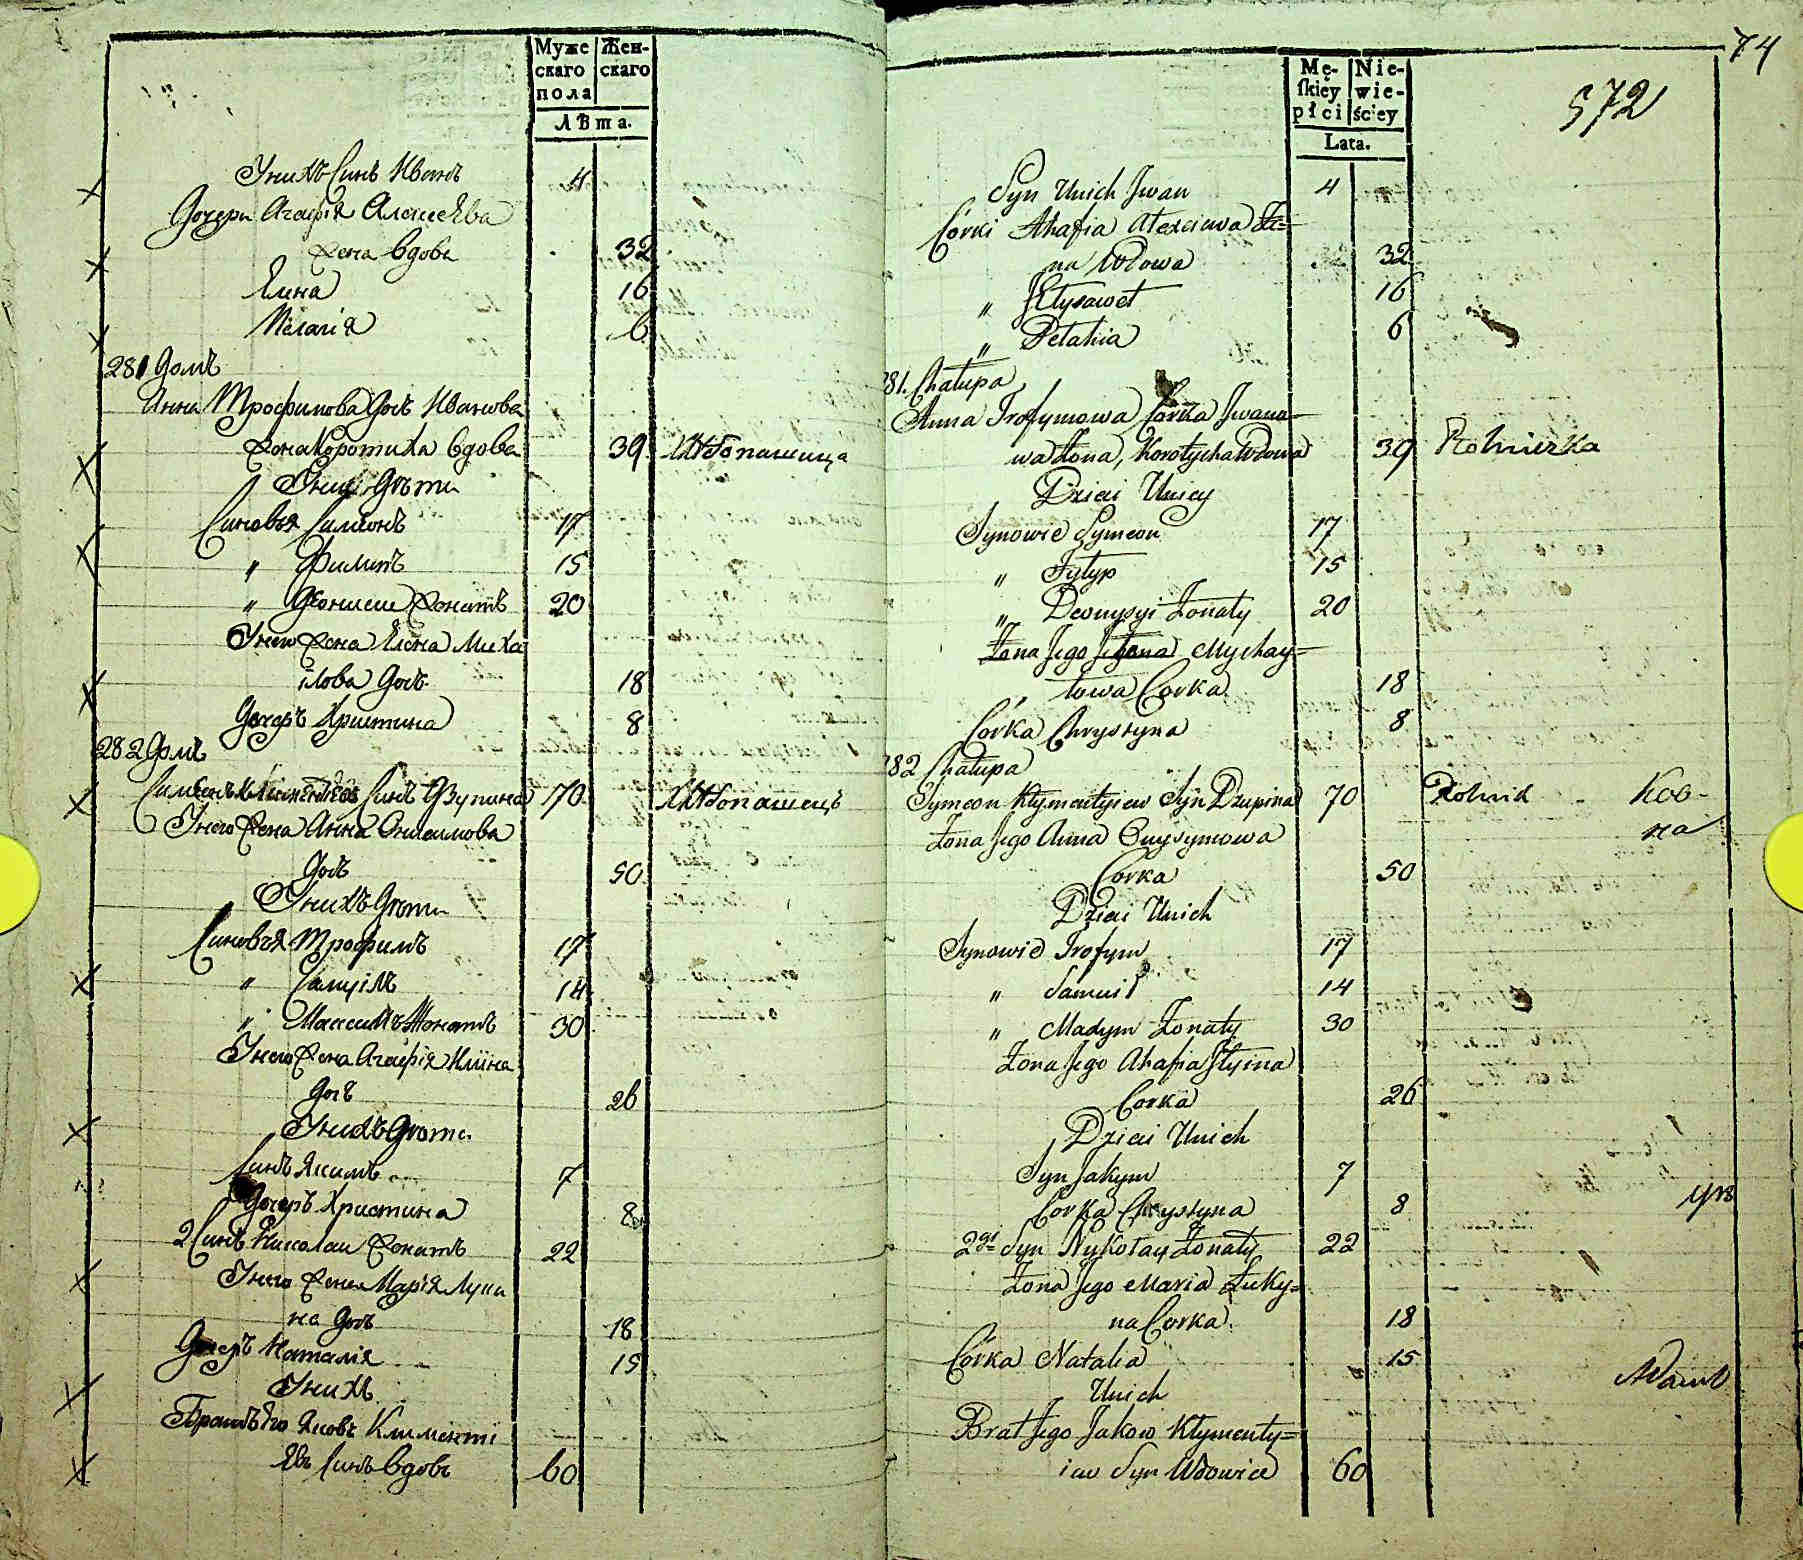 Муже
скаго
пола
Жен-
скаго
Лѣта.
Унихъ Синъ Иванъ 4
Дочери Агафія Алексеева
Жена Вдова 32
Елена 16
Пелагія 6
281 Домъ
Анна Трофимова Дочь Иванова
Жена Коротиха Вдова 39 Хлѣбопашица
Унихъ Дѣти
Синовья Симеонъ 17
" Филипъ 15
" Деонисии Женатъ 20
Унего Жена Елена Миха
ілова Дочь 18
Дочеръ Христина 8
282 Домъ
Симеонъ Климентѣевъ Синъ Дзупина 70 Хлѣбопашецъ
Унего Жена Анна Онисимова
Дочь 50
Унихъ Дѣти
Синовъя Трофимъ 17
" Самуілъ 14
" Максимъ Женатъ 30
Унего Жена Агафія Иліина
Дочь 26
Унихъ Дѣти
Синъ Якимъ 7
Дочеръ Христина 8
2 Синъ Николаи Женатъ 22
Унего Жена Марія Луки
на Дочь 18
Дочеръ Наталія 15
Унихъ
Братъ Его Яковъ Клименті
евъ Синъ Вдовъ 60
74
572
Mę-
skiey
płci
Nie-
wie-
ściey
Lata.
Syn Unich Jwan 4
Córki Ahafia Alexeiewa Żo=
na Wdowa 32
" Jełysawet 16
" Pelahia 6
281. Chałupa
Anna Trofymowa Corka Jwano-
wa Żona, Korotycha Wdowa 39 Rolniczka
Dzieci Unicy
Synowie Symeon 17
" Fylyp 15
" Deonysyi Żonaty 20
Żona Jego Jełena Mychay=
" łowa Corka 18
Córka Chrystyna 8
282 Chałupa
Symeon Kłymentyiew Syn Dzupina 70 Rolnik
Żona Jego Anna Onysymowa
Corka 50
Dzieci Unich
Synowie Trofym 17
" Samuił 14
" Maxym Żonaty 30
Żona Jego Ahafia Jłyina
Corka 26
Dzieci Unich
Syn Jakym 7
Corka Chrystyna 8
2gi Syn Nykołay Żonaty 22
Żona Jego Maria Łuky=
na Corka 18
Córka Natalia 15
Unich
Brat Jego Jakow Kłymenty=
iew Syn Wdowiec 60